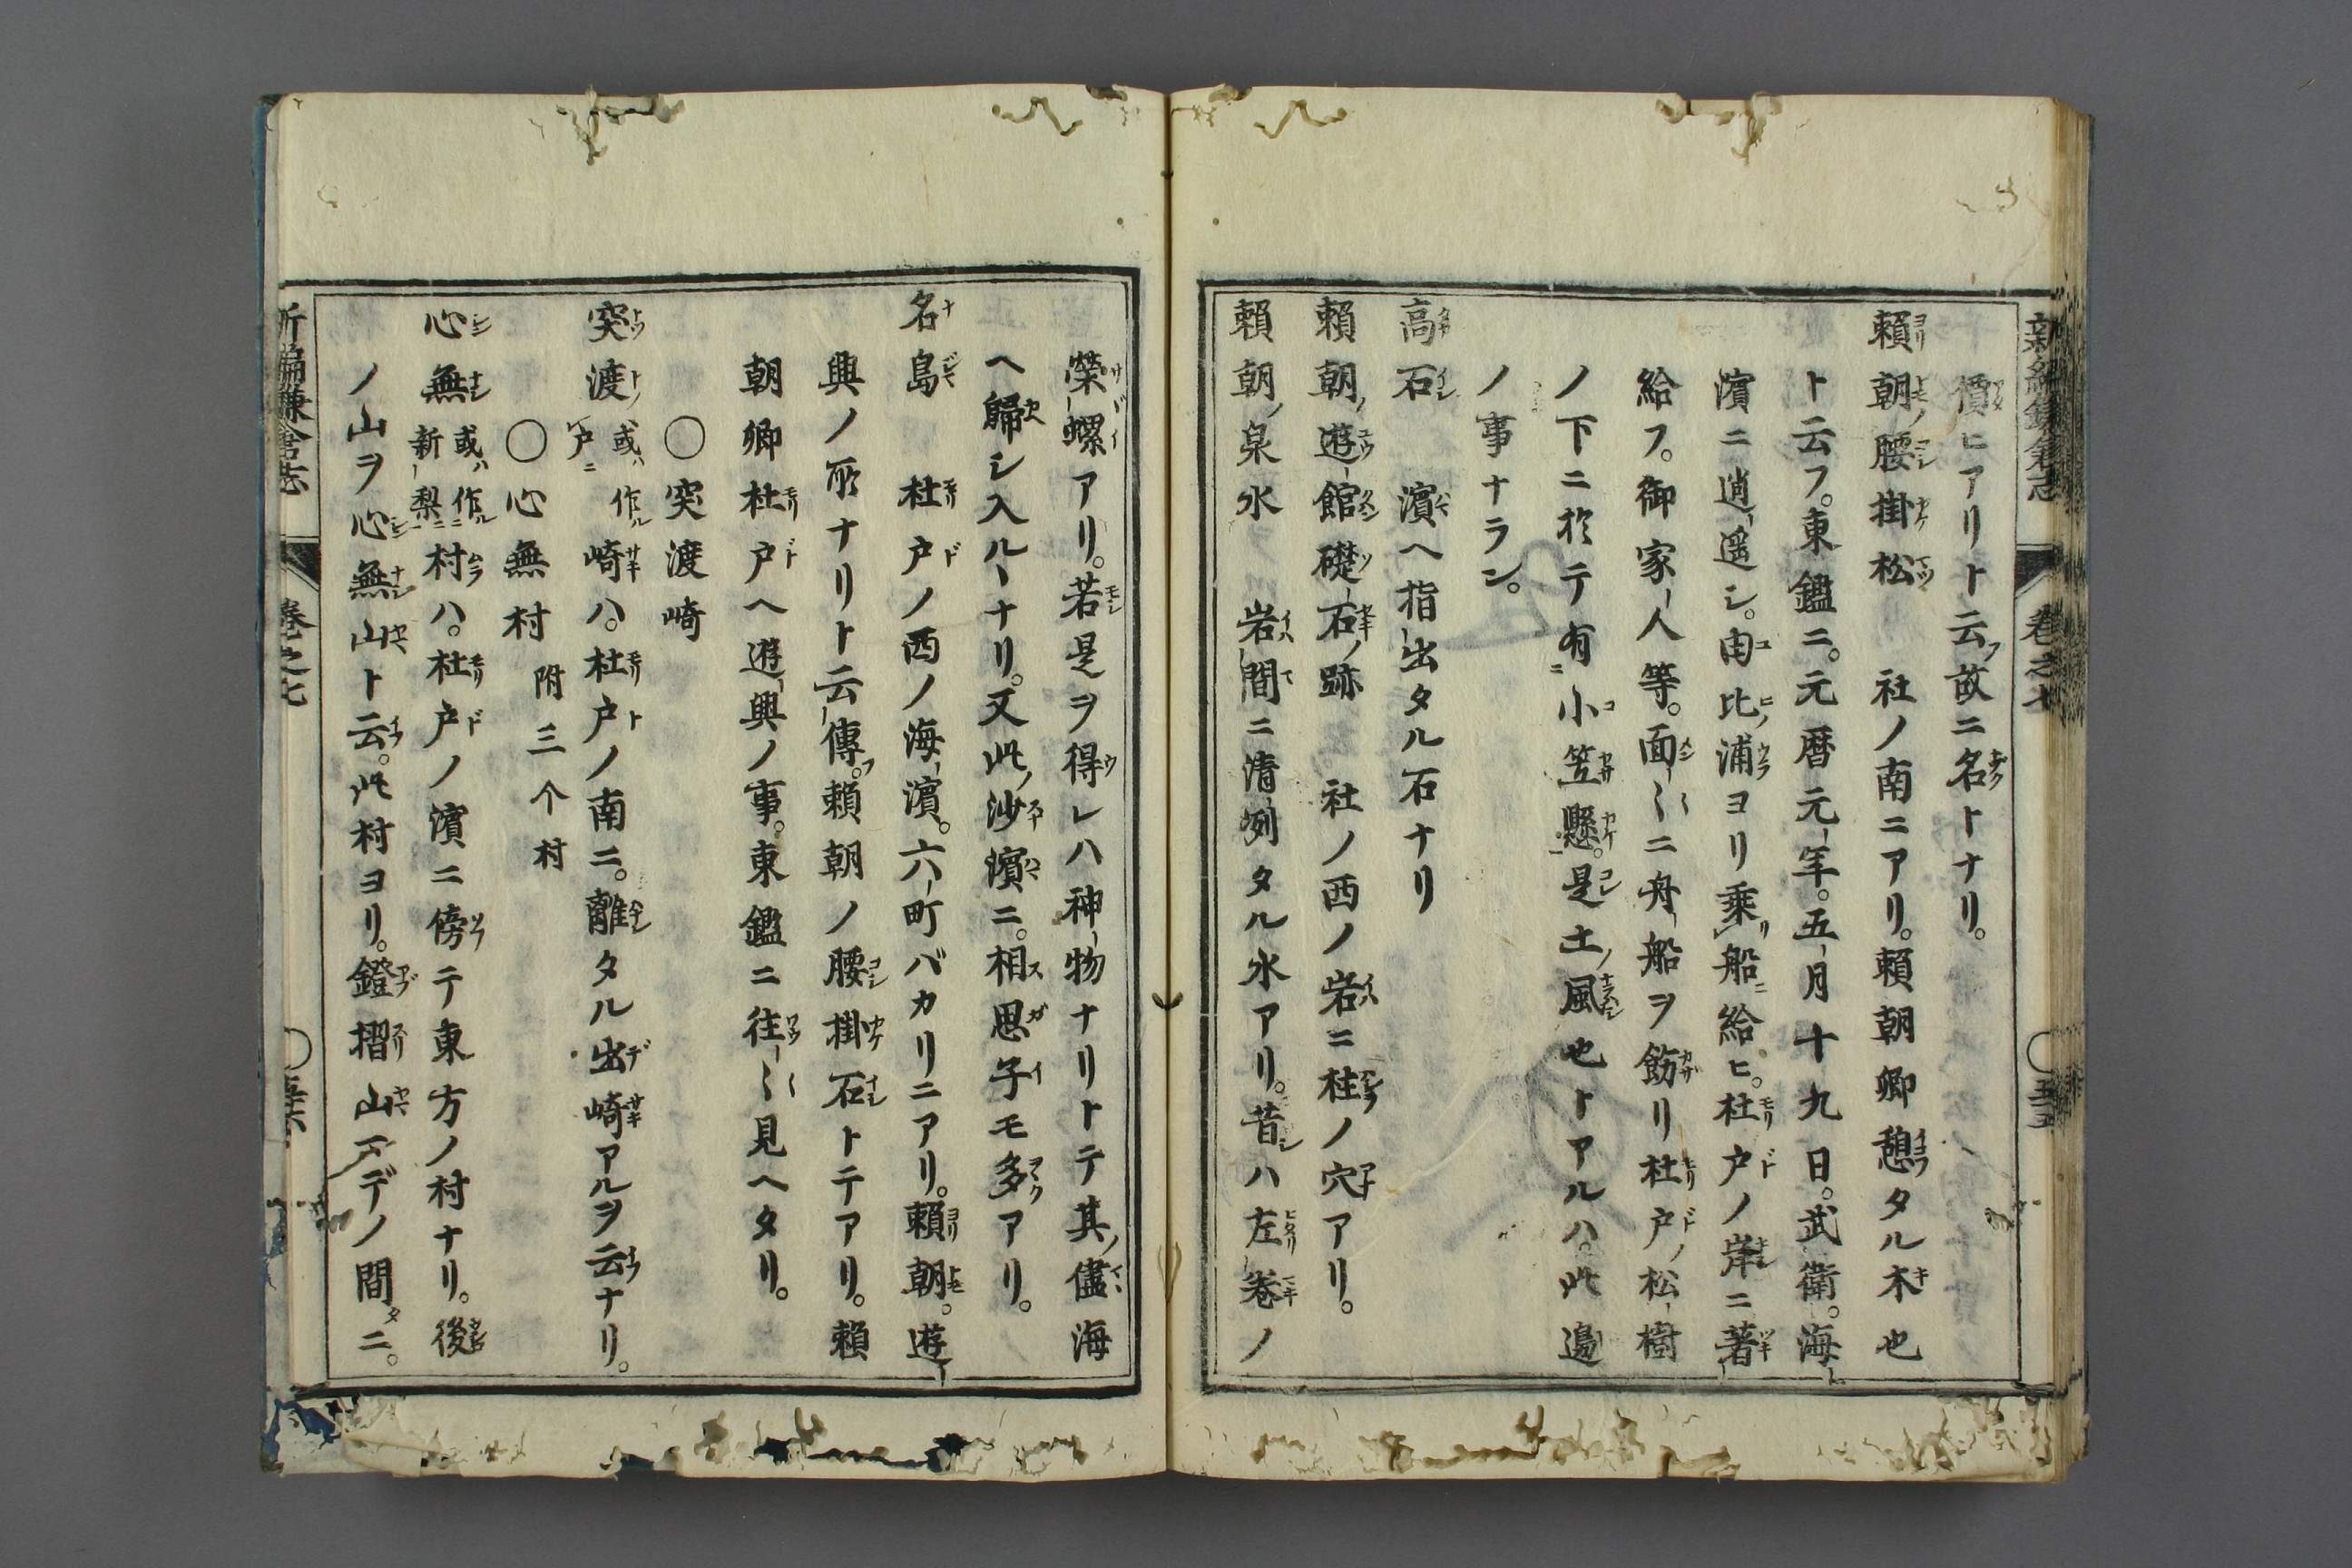 新編鎌倉志 卷之七 〇五十五
價ヒアリト云フ故ニ名トナリ。
賴朝ノ腰掛松 社ノ南ニアリ。賴朝卿憩タル木也
ト云フ。東鑑ニ。元暦元年。五月十九日。武衛。海
濱ニ逍遥シ。由比ノ浦ヨリ乗リ船ニ給ヒ。杜戸ノ岸ニ著
給フ。御家人等。面〻ニ舟船ヲ餝リ杜戸ノ松樹
ノ下ニ於テ有ニ小笠懸。是土ノ風也トアルハ。此邊
ノ事ナラン。
高石 濱ヘ指出タル石ナリ
賴朝ノ遊館礎石ノ跡 社ノ西ノ岩ニ柱ノ穴アリ。
賴朝ノ泉水 岩間ニ清冽タル水アリ。昔シハ左リ卷ノ
榮螺アリ。若是ヲ得レハ神物ナリトテ其ノ儘海
ヘ歸シ入ルヽナリ。又此ノ沙濱ニ。相思子モ多アリ。
名島 杜戸ノ西ノ海濱。六町バカリニアリ。賴朝。遊
興ノ所ナリト云傳フ。賴朝ノ腰掛石トテアリ。賴
朝卿杜戸ヘ遊興ノ事。東鑑ニ往〻見ヘタリ。
〇突渡崎
突渡ノ或ハ作ル戸ニ崎ハ。杜戸ノ南ニ。離タル出崎アルヲ云ナリ。
〇心無村 附三个村
心無或ハ作ル新梨ニ村ハ。杜戸ノ濱ニ傍テ東方ノ村ナリ。後
ノ山ヲ心無山ト云。此村ヨリ。鐙摺山マデノ間タニ。
新編鎌倉志 卷之七 〇五十六